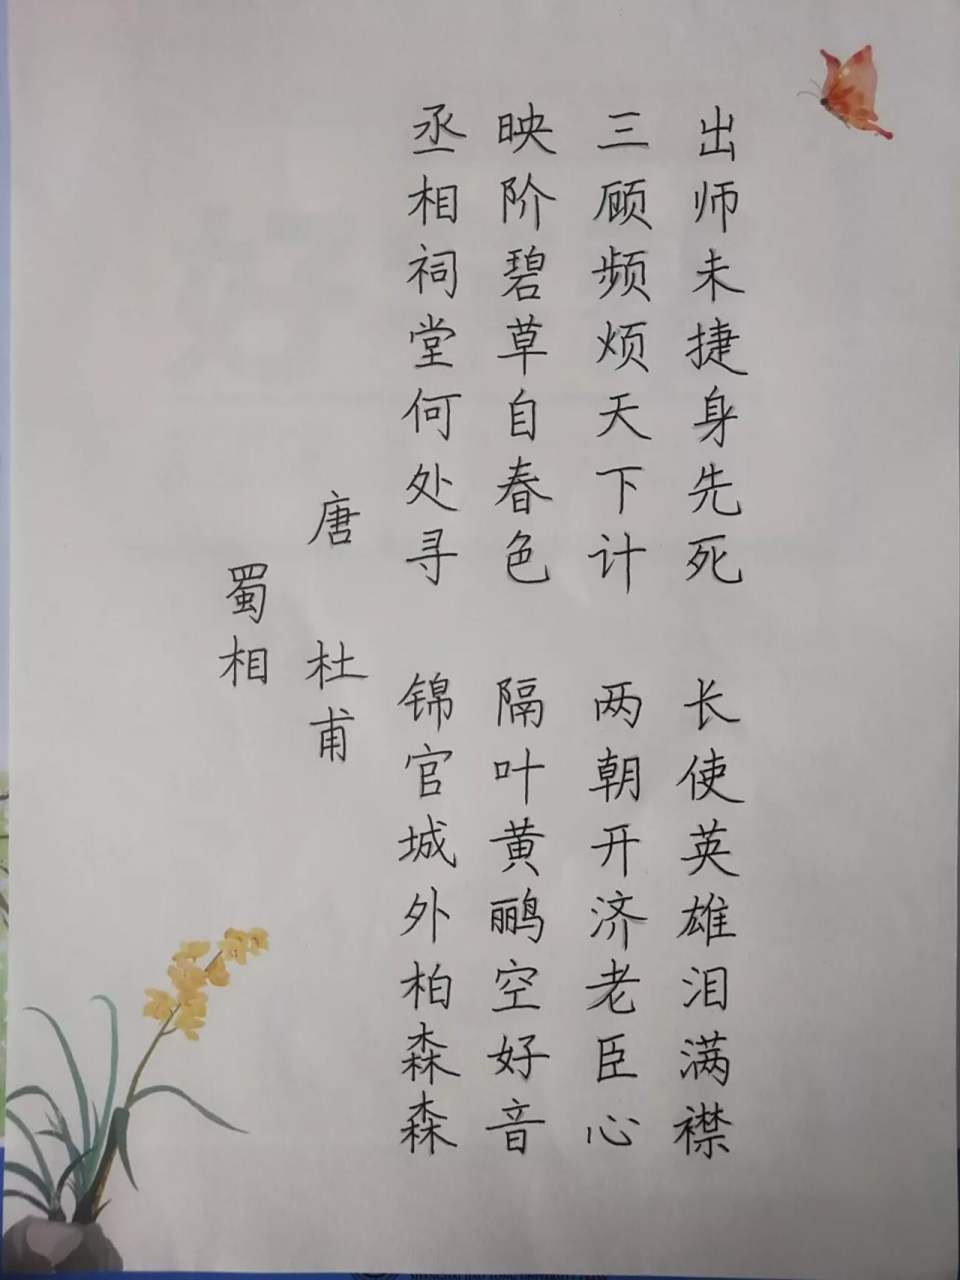 蜀相
唐 杜甫
丞相祠堂何处寻 锦官城外柏森森
映阶碧草自春色 隔叶黄鹂空好音
三顾频烦天下计 两朝开济老臣心
出师未捷身先死 长使英雄泪满襟